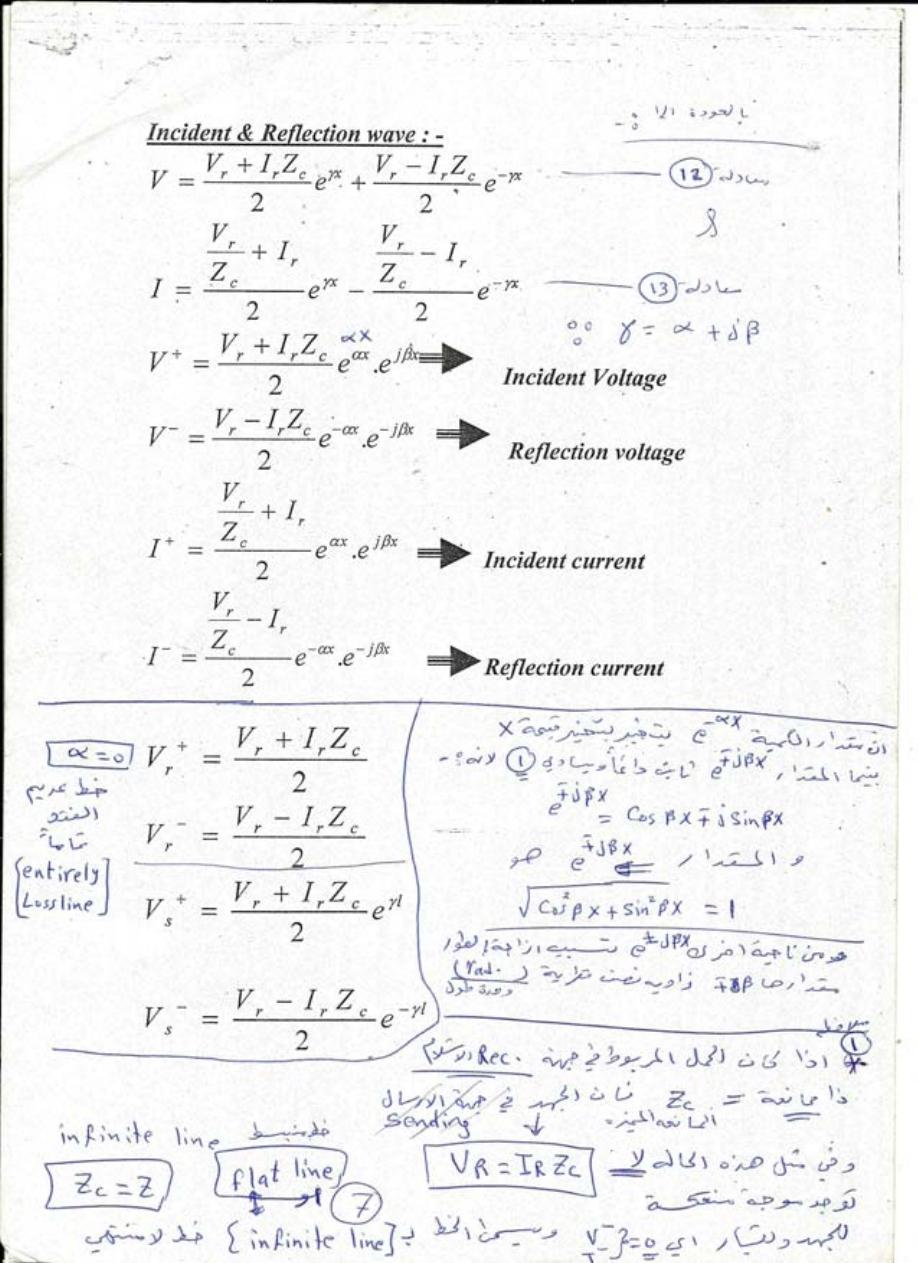 بالعودة الى :-
Incident & Reflection wave : -
V = \frac{V_r + I_r Z_c}{2} e^{γx} + \frac{V_r - I_r Z_c}{2} e^{-γx} معادلة 12
و
I = \frac{\frac{V_r}{Z_c} + I_r}{2} e^{γx} - \frac{\frac{V_r}{Z_c} - I_r}{2} e^{-γx} معادلة 13
∵ γ = α + jβ
αx
V^+ = \frac{V_r + I_r Z_c}{2} e^{αx} . e^{jβx} ⇒ Incident Voltage
V^- = \frac{V_r - I_r Z_c}{2} e^{-αx} . e^{-jβx} ⇒ Reflection voltage
I^+ = \frac{\frac{V_r}{Z_c} + I_r}{2} e^{αx} . e^{jβx} ⇒ Incident current
I^- = \frac{\frac{V_r}{Z_c} - I_r}{2} e^{-αx} . e^{-jβx} ⇒ Reflection current
α = 0
خط عديم
الفقد
تماماً
[entirely
Lossline]
V_r^+ = \frac{V_r + I_r Z_c}{2}
V_r^- = \frac{V_r - I_r Z_c}{2}
V_s^+ = \frac{V_r + I_r Z_c}{2} e^{γl}
V_s^- = \frac{V_r - I_r Z_c}{2} e^{-γl}
ان مقدار الكمية e^{-αx} يتغير بتغير قيمة x
بينما المقدار e^{∓jβx} ثابت دائماً ويساوي 1 لانه :-
e^{∓jβx} = Cos βx ∓ j Sin βx
و المقدار e^{∓jβx} ⇐ هو
\sqrt{Cos^2 βx + Sin^2 βx} = 1
ومن ناحية اخرى e^{±jβx} تسبب ازاحة الطور
مقدارها ∓β زاوية نصف قطرية (rad. / وحدة طول)
ملاحظة
1 * اذا كان الحمل المربوط في جهة Rec. الاستلام
ذا ممانعة = Z_c فان الجهد في جهة الارسال
الممانعة المميزة
Sending
V_R = I_R Z_c
وفي مثل هذه الحالة لا
توجد موجة منعكسة
للجهد والتيار اي V^- = 0
ويسمى الخط بـ {infinite line} خط لامنتهي
infinite line
خط منبسط
Z_c = Z
flat line
او
7